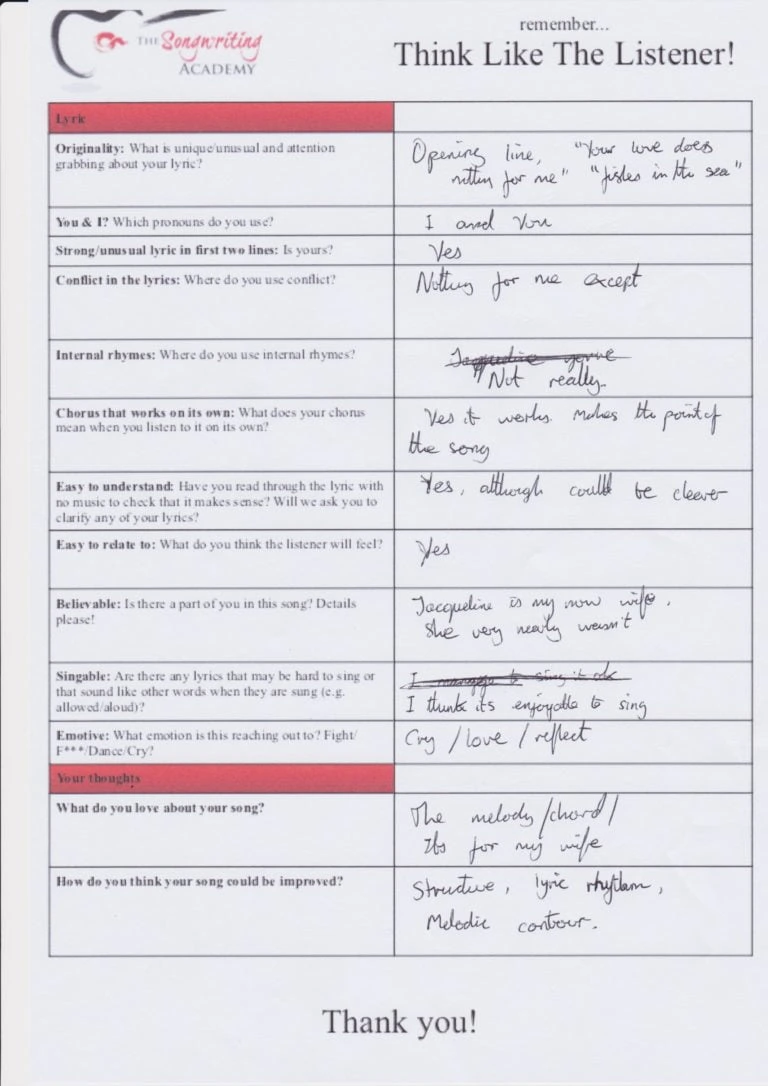 THE Songwriting
ACADEMY
remember...
Think Like The Listener!
Lyric
Originality: What is unique/unusual and attention
grabbing about your lyric?
Opening line, "Your love does
nothin for me" "fishes in the sea"
You & I? Which pronouns do you use?
I and You
Strong/unusual lyric in first two lines: Is yours?
Yes
Conflict in the lyrics: Where do you use conflict?
Nothing for me except
Internal rhymes: Where do you use internal rhymes?
Not really.
Chorus that works on its own: What does your chorus
mean when you listen to it on its own?
Yes it works. Makes the point of
the song
Easy to understand: Have you read through the lyric with
no music to check that it makes sense? Will we ask you to
clarify any of your lyrics?
Yes, although could be clearer
Easy to relate to: What do you think the listener will feel?
Yes
Believable: Is there a part of you in this song? Details
please!
Jacqueline is my now wife.
She very nearly wasn't
Singable: Are there any lyrics that may be hard to sing or
that sound like other words when they are sung (e.g.
allowed/aloud)?
I manage to sing it ok
I think its enjoyable to sing
Emotive: What emotion is this reaching out to? Fight/
F***/Dance/Cry?
Cry / love / reflect
Your thoughts
What do you love about your song?
The melody/chord/
Its for my wife
How do you think your song could be improved?
Structure, lyric rhythm,
Melodic contour.
Thank you!